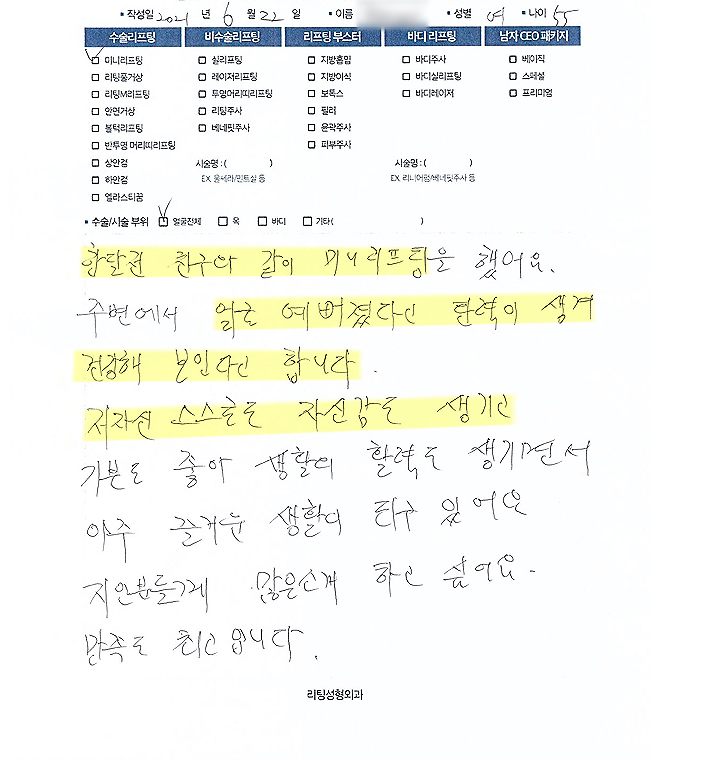 • 작성일 2021 년 6 월 22 일 • 이름 • 성별 여 • 나이 55
수술리프팅 비수술리프팅 리프팅 부스터 바디 리프팅 남자 CEO 패키지
미니리프팅 실리프팅 지방흡입 바디주사 베이직
리팅풍거상 레이저리프팅 지방이식 바디실리프팅 스페셜
리팅M리프팅 투명머리띠리프팅 보톡스 바디레이저 프리미엄
안면거상 리팅주사 필러
볼턱리프팅 베네핏주사 윤곽주사
반투명 머리띠리프팅 피부주사
상안검 시술명 : ( ) 시술명 : ( )
하안검 EX. 울쎄라/민트실 등 EX. 리니어펌/베네핏주사 등
엘라스티꿈
• 수술/시술 부위 얼굴전체 목 바디 기타 ( )
한달전 친구와 같이 미니리프팅을 했어요.
주변에서 얼굴 예뻐졌다고 탄력이 생겨
건강해 보인다고 합니다.
저자신 스스로도 자신감도 생기고
기분도 좋아 생활의 활력도 생기면서
아주 즐거운 생활이 되고 있어요
지인분들게 많은소개 하고 싶어요.
만족도 최고입니다.
리팅성형외과